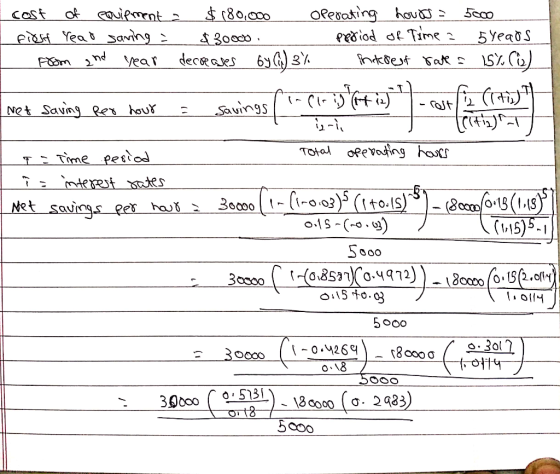 cost of equipment = $180,000 operating hours = 5000
First Year saving = $30000. Period of Time = 5 Years
From 2nd Year decreases by (i1) 3% interest rate = 15% (i2)
Net saving per hour = savings [ (1 - (1-i1)^T (1+i2)^-T) / (i2 - i1) ] - cost [ i2 (1+i2)^T / ((1+i2)^T - 1) ]
Total operating hours
T = Time period
i = interest rates
Net savings per hour = 30000 ( (1 - (1-0.03)^5 (1+0.15)^-5) / (0.15 - (-0.03)) ) - 180000 ( 0.15 (1.15)^5 / ((1.15)^5 - 1) )
5000
= 30000 ( (1 - (0.8587)(0.4972)) / (0.15 + 0.03) ) - 180000 ( 0.15 (2.0114) / 1.0114 )
5000
= 30000 ( (1 - 0.4269) / 0.18 ) - 180000 ( 0.3017 / 1.0114 )
5000
= 30000 ( 0.5731 / 0.18 ) - 180000 (0.2983)
5000